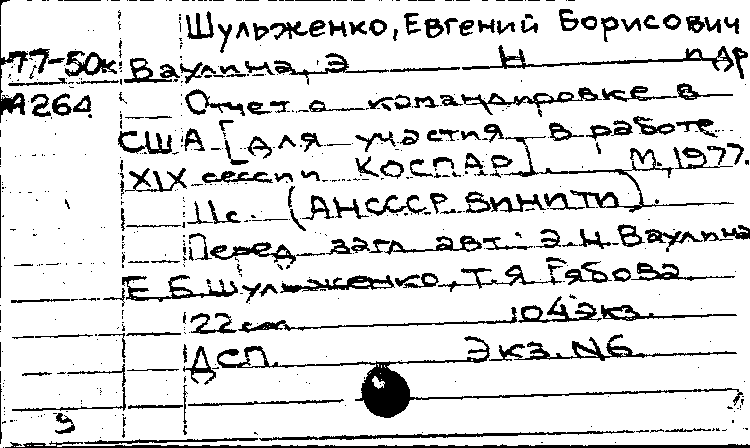 Шульженко, Евгений Борисович
77-50к Ваулина, Э Н и др
А264 Отчет о командировке в
США [для участия в работе
XIX сессии КОСПАР]. М, 1977.
11с. (АНСССР. ВИНИТИ).
Перед загл авт: Э.Н. Ваулина
Е.Б. Шульженко, Т.Я Гябова.
22см 104экз.
ДСП. Экз. N6.